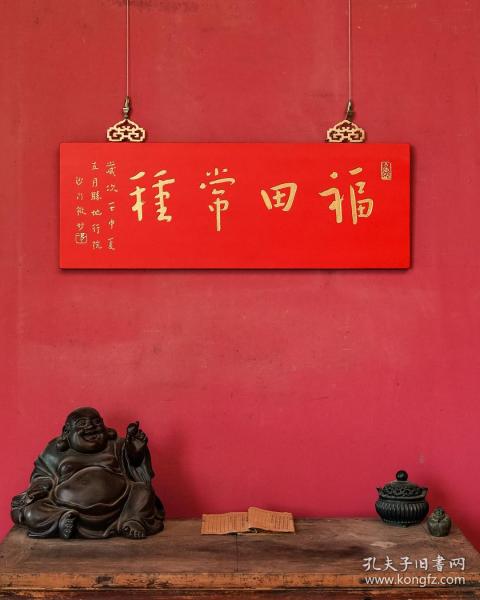 福田常種
歲次壬申夏
五月勝地行院
沙门
孔夫子旧書网
www.kongfz.com